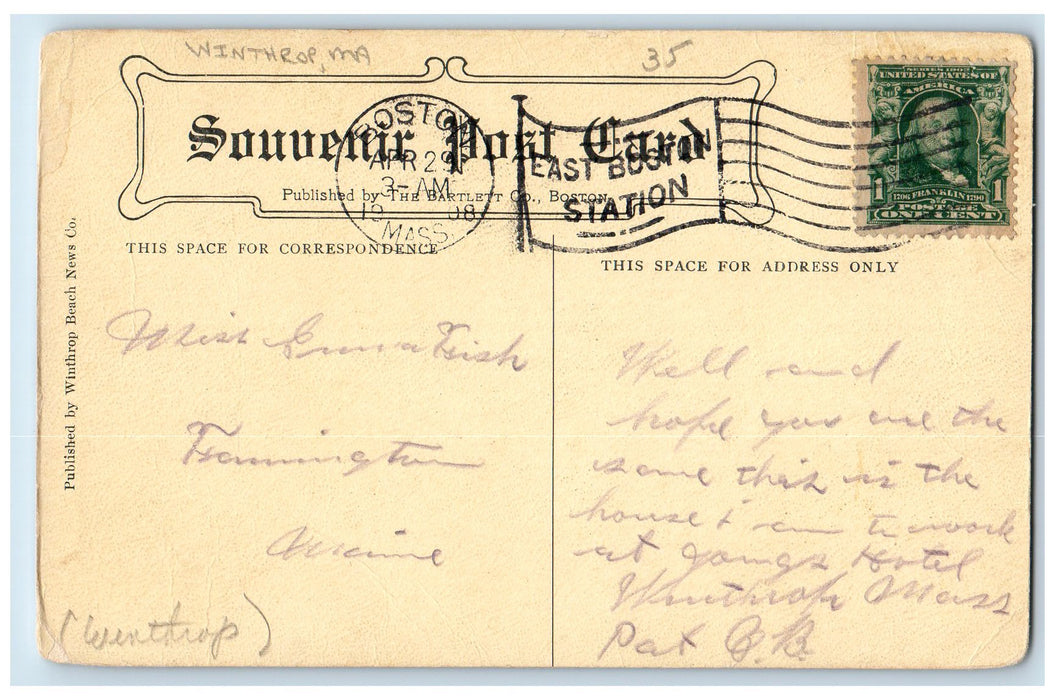 WINTHROP, MA
35
Souvenir Post Card
Published by THE BARTLETT Co., Boston
BOSTON
APR 29
3-AM
1908
MASS.
EAST BOSTON
STATION
SERIES 1902
UNITED STATES OF
AMERICA
1706 FRANKLIN 1790
POSTAGE
1 ONE CENT 1
THIS SPACE FOR CORRESPONDENCE
THIS SPACE FOR ADDRESS ONLY
Published by Winthrop Beach News Co.
Miss Fish
Farmington
Maine
(Winthrop)
Well and
hope you are the
same this is the
house I am to work
at Hotel
Winthrop Mass
Pat